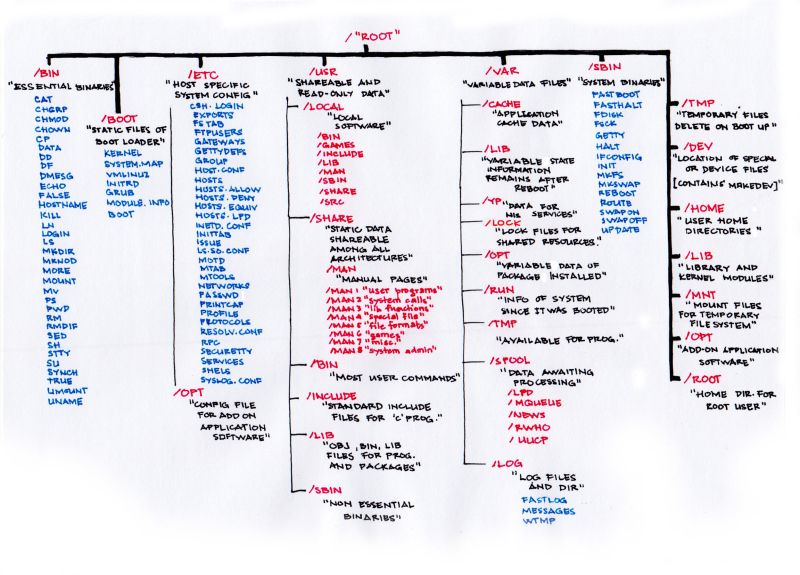 /"ROOT"
/BIN
"ESSENTIAL BINARIES"
CAT
CHGRP
CHMOD
CHOWN
CP
DATA
DD
DF
DMESG
ECHO
FALSE
HOSTNAME
KILL
LN
LOGIN
LS
MKDIR
MKNOD
MORE
MOUNT
MV
PS
PWD
RM
RMDIF
SED
SH
STTY
SU
SYNCH
TRUE
UMOUNT
UNAME
/BOOT
"STATIC FILES OF
BOOT LOADER"
KERNEL
SYSTEM.MAP
VMLINUZ
INITRD
GRUB
MODULE.INFO
BOOT
/ETC
"HOST SPECIFIC
SYSTEM CONFIG"
CSH.LOGIN
EXPORTS
FSTAB
FTPUSERS
GATEWAYS
GETTYDEFS
GROUP
HOST.CONF
HOSTS
HOSTS.ALLOW
HOSTS.DENY
HOSTS.EQUIV
HOSTS.LPD
INETD.CONF
INITTAB
ISSUE
LS.SO.CONF
MOTD
MTAB
MTOOLS
NETWORKS
PASSWD
PRINTCAP
PROFILE
PROTOCOLS
RESOLV.CONF
RPC
SECURETTY
SERVICES
SHELLS
SYSLOG.CONF
/OPT
"CONFIG FILE
FOR ADD ON
APPLICATION
SOFTWARE"
/USR
"SHAREABLE AND
READ-ONLY DATA"
/LOCAL
"LOCAL
SOFTWARE"
/BIN
/GAMES
/INCLUDE
/LIB
/MAN
/SBIN
/SHARE
/SRC
/SHARE
"STATIC DATA
SHAREABLE
AMONG ALL
ARCHITECTURES"
/MAN
"MANUAL PAGES"
/MAN 1 "user programs"
/MAN 2 "system calls"
/MAN 3 "lib functions"
/MAN 4 "special file"
/MAN 5 "file formats"
/MAN 6 "games"
/MAN 7 "misc."
/MAN 8 "system admin"
/BIN
"MOST USER COMMANDS"
/INCLUDE
"STANDARD INCLUDE
FILES FOR 'C' PROG."
/LIB
"OBJ, BIN, LIB
FILES FOR PROG.
AND PACKAGES"
/SBIN
"NON ESSENTIAL
BINARIES"
/VAR
"VARIABLE DATA FILES"
/CACHE
"APPLICATION
CACHE DATA"
/LIB
"VARIABLE STATE
INFORMATION
REMAINS AFTER
REBOOT"
/YP "DATA FOR
NIS SERVICES"
/LOCK
"LOCK FILES FOR
SHARED RESOURCES."
/OPT
"VARIABLE DATA OF
PACKAGE INSTALLED"
/RUN
"INFO OF SYSTEM
SINCE IT WAS BOOTED"
/TMP
"AVAILABLE FOR PROG.
/SPOOL
"DATA AWAITING
PROCESSING"
/LPD
/MQUEUE
/NEWS
/RWHO
/UUCP
/LOG
"LOG FILES
AND DIR"
FASTLOG
MESSAGES
WTMP
/SBIN
"SYSTEM BINARIES"
FASTBOOT
FASTHALT
FDISK
FSCK
GETTY
HALT
IFCONFIG
INIT
MKFS
MKSWAP
REBOOT
ROUTE
SWAPON
SWAPOFF
UPDATE
/TMP
"TEMPORARY FILES
DELETE ON BOOT UP"
/DEV
"LOCATION OF SPECIAL
OR DEVICE FILES
[CONTAINS MAKEDEV]"
/HOME
"USER HOME
DIRECTORIES"
/LIB
"LIBRARY AND
KERNEL MODULES"
/MNT
"MOUNT FILES
FOR TEMPORARY
FILE SYSTEM"
/OPT
"ADD-ON APPLICATION
SOFTWARE"
/ROOT
"HOME DIR. FOR
ROOT USER"